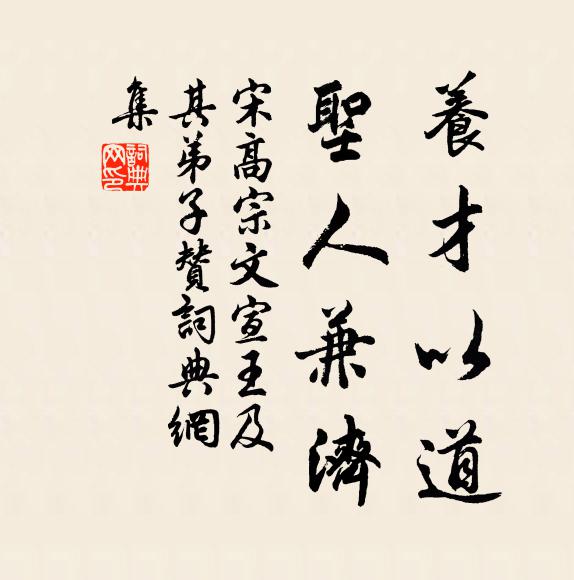 養才以道
聖人兼濟
宋高宗文宣王及
其弟子贊詞典網
集
詞典
网印